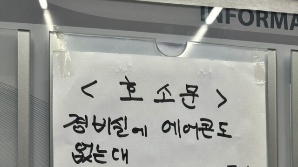 INFORMA
< 호 소 문 >
경비실에 에어콘도
없는대